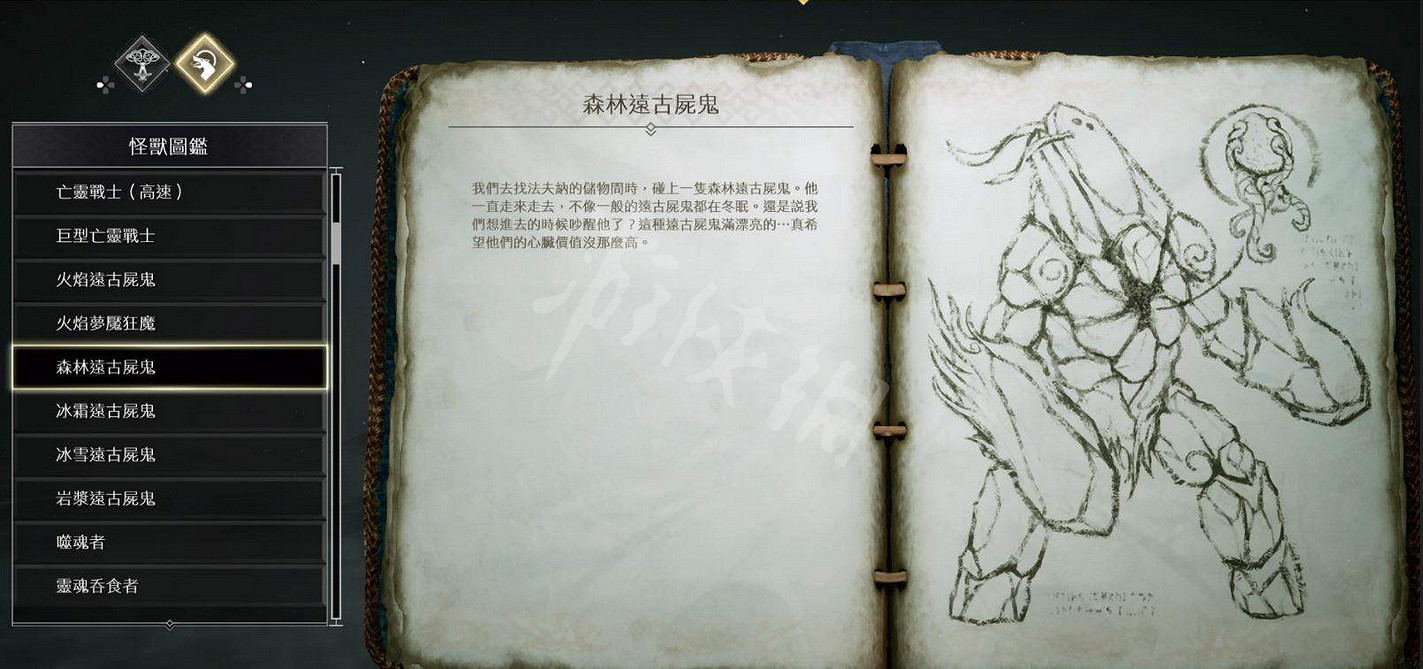 怪獸圖鑑
亡靈戰士（高速）
巨型亡靈戰士
火焰遠古屍鬼
火焰夢魘狂魔
森林遠古屍鬼
冰霜遠古屍鬼
冰雪遠古屍鬼
岩漿遠古屍鬼
噬魂者
靈魂吞食者
森林遠古屍鬼
我們去找法夫納的儲物間時，碰上一隻森林遠古屍鬼。他
一直走來走去，不像一般的遠古屍鬼都在冬眠。還是說我
們想進去的時候吵醒他了？這種遠古屍鬼滿漂亮的⋯真希
望他們的心臟價值沒那麼高。
游侠网